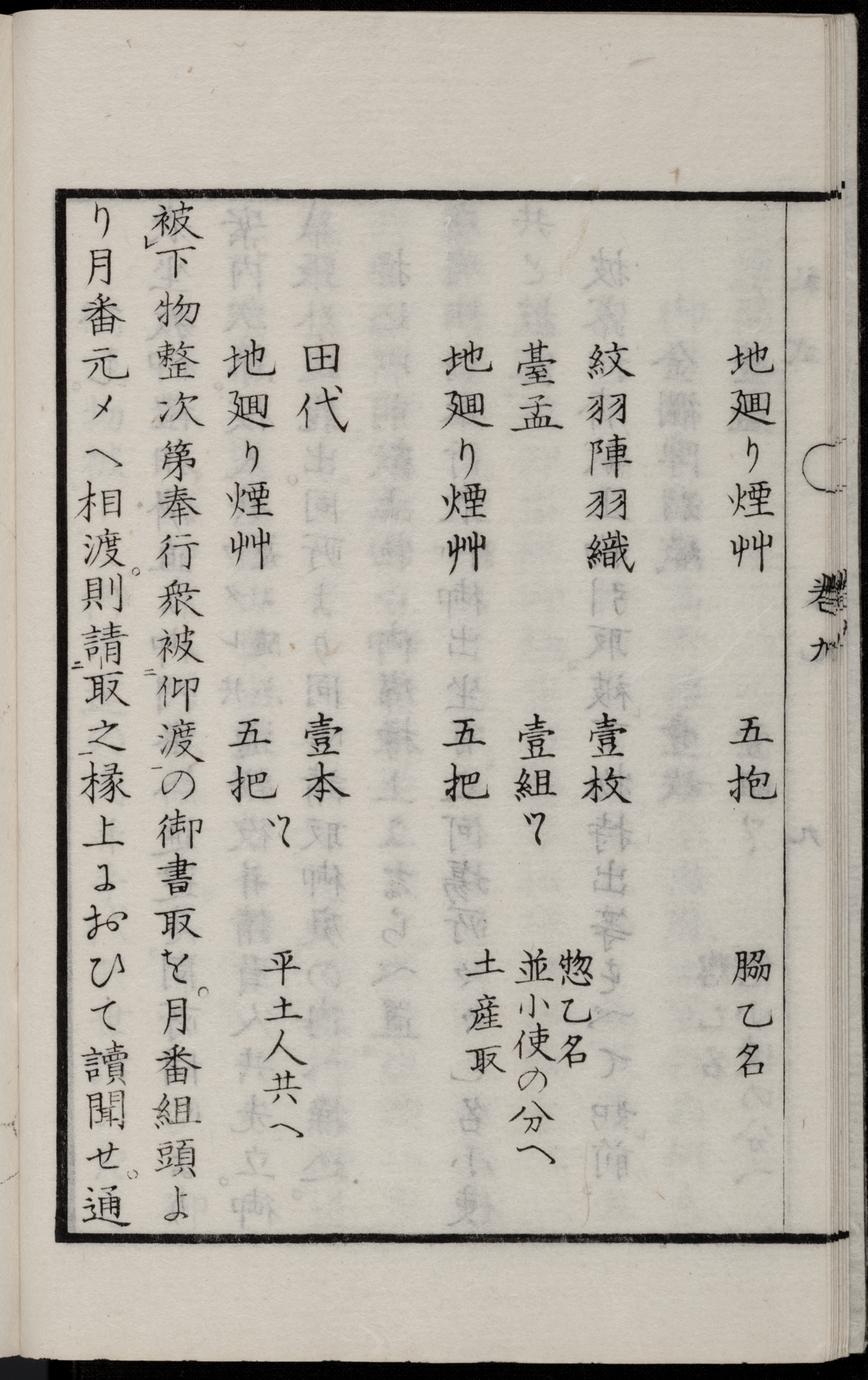 地廻り煙艸　五抱　脇乙名
紋羽陣羽織　壹枚
臺盃　壹組ツヽ
地廻り煙艸　五把
惣乙名
並小使の分へ
土産取
田代　壹本
地廻り煙艸　五把ツヽ
平土人共へ
被下物整次第奉行衆被仰渡の御書取を月番組頭よ
り月番元メへ相渡則請取之椽上におひて讀聞せ通
巻九